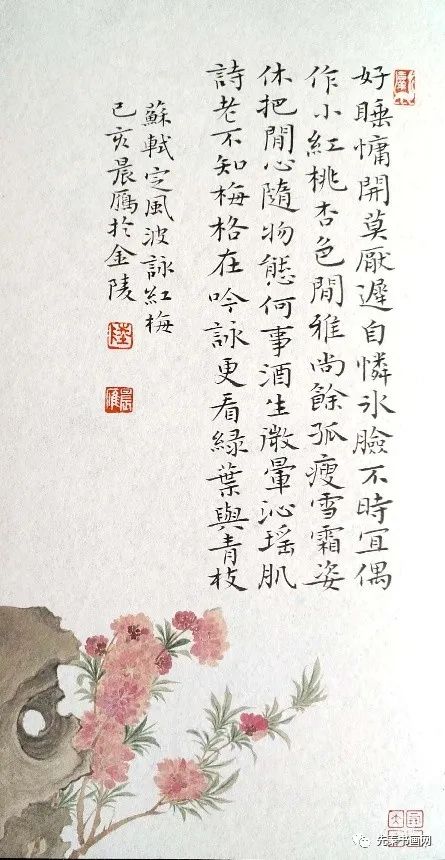 好睡慵開莫厭遲自憐氷臉不時宜偶
作小紅桃杏色閒雅尚餘孤瘦雪霜姿
休把閒心隨物態何事酒生微暈沁瑤肌
詩老不知梅格在吟詠更看緑葉與青枝
蘇軾定風波詠紅梅
己亥晨雁於金陵
陸
晨雁
先秦书画网